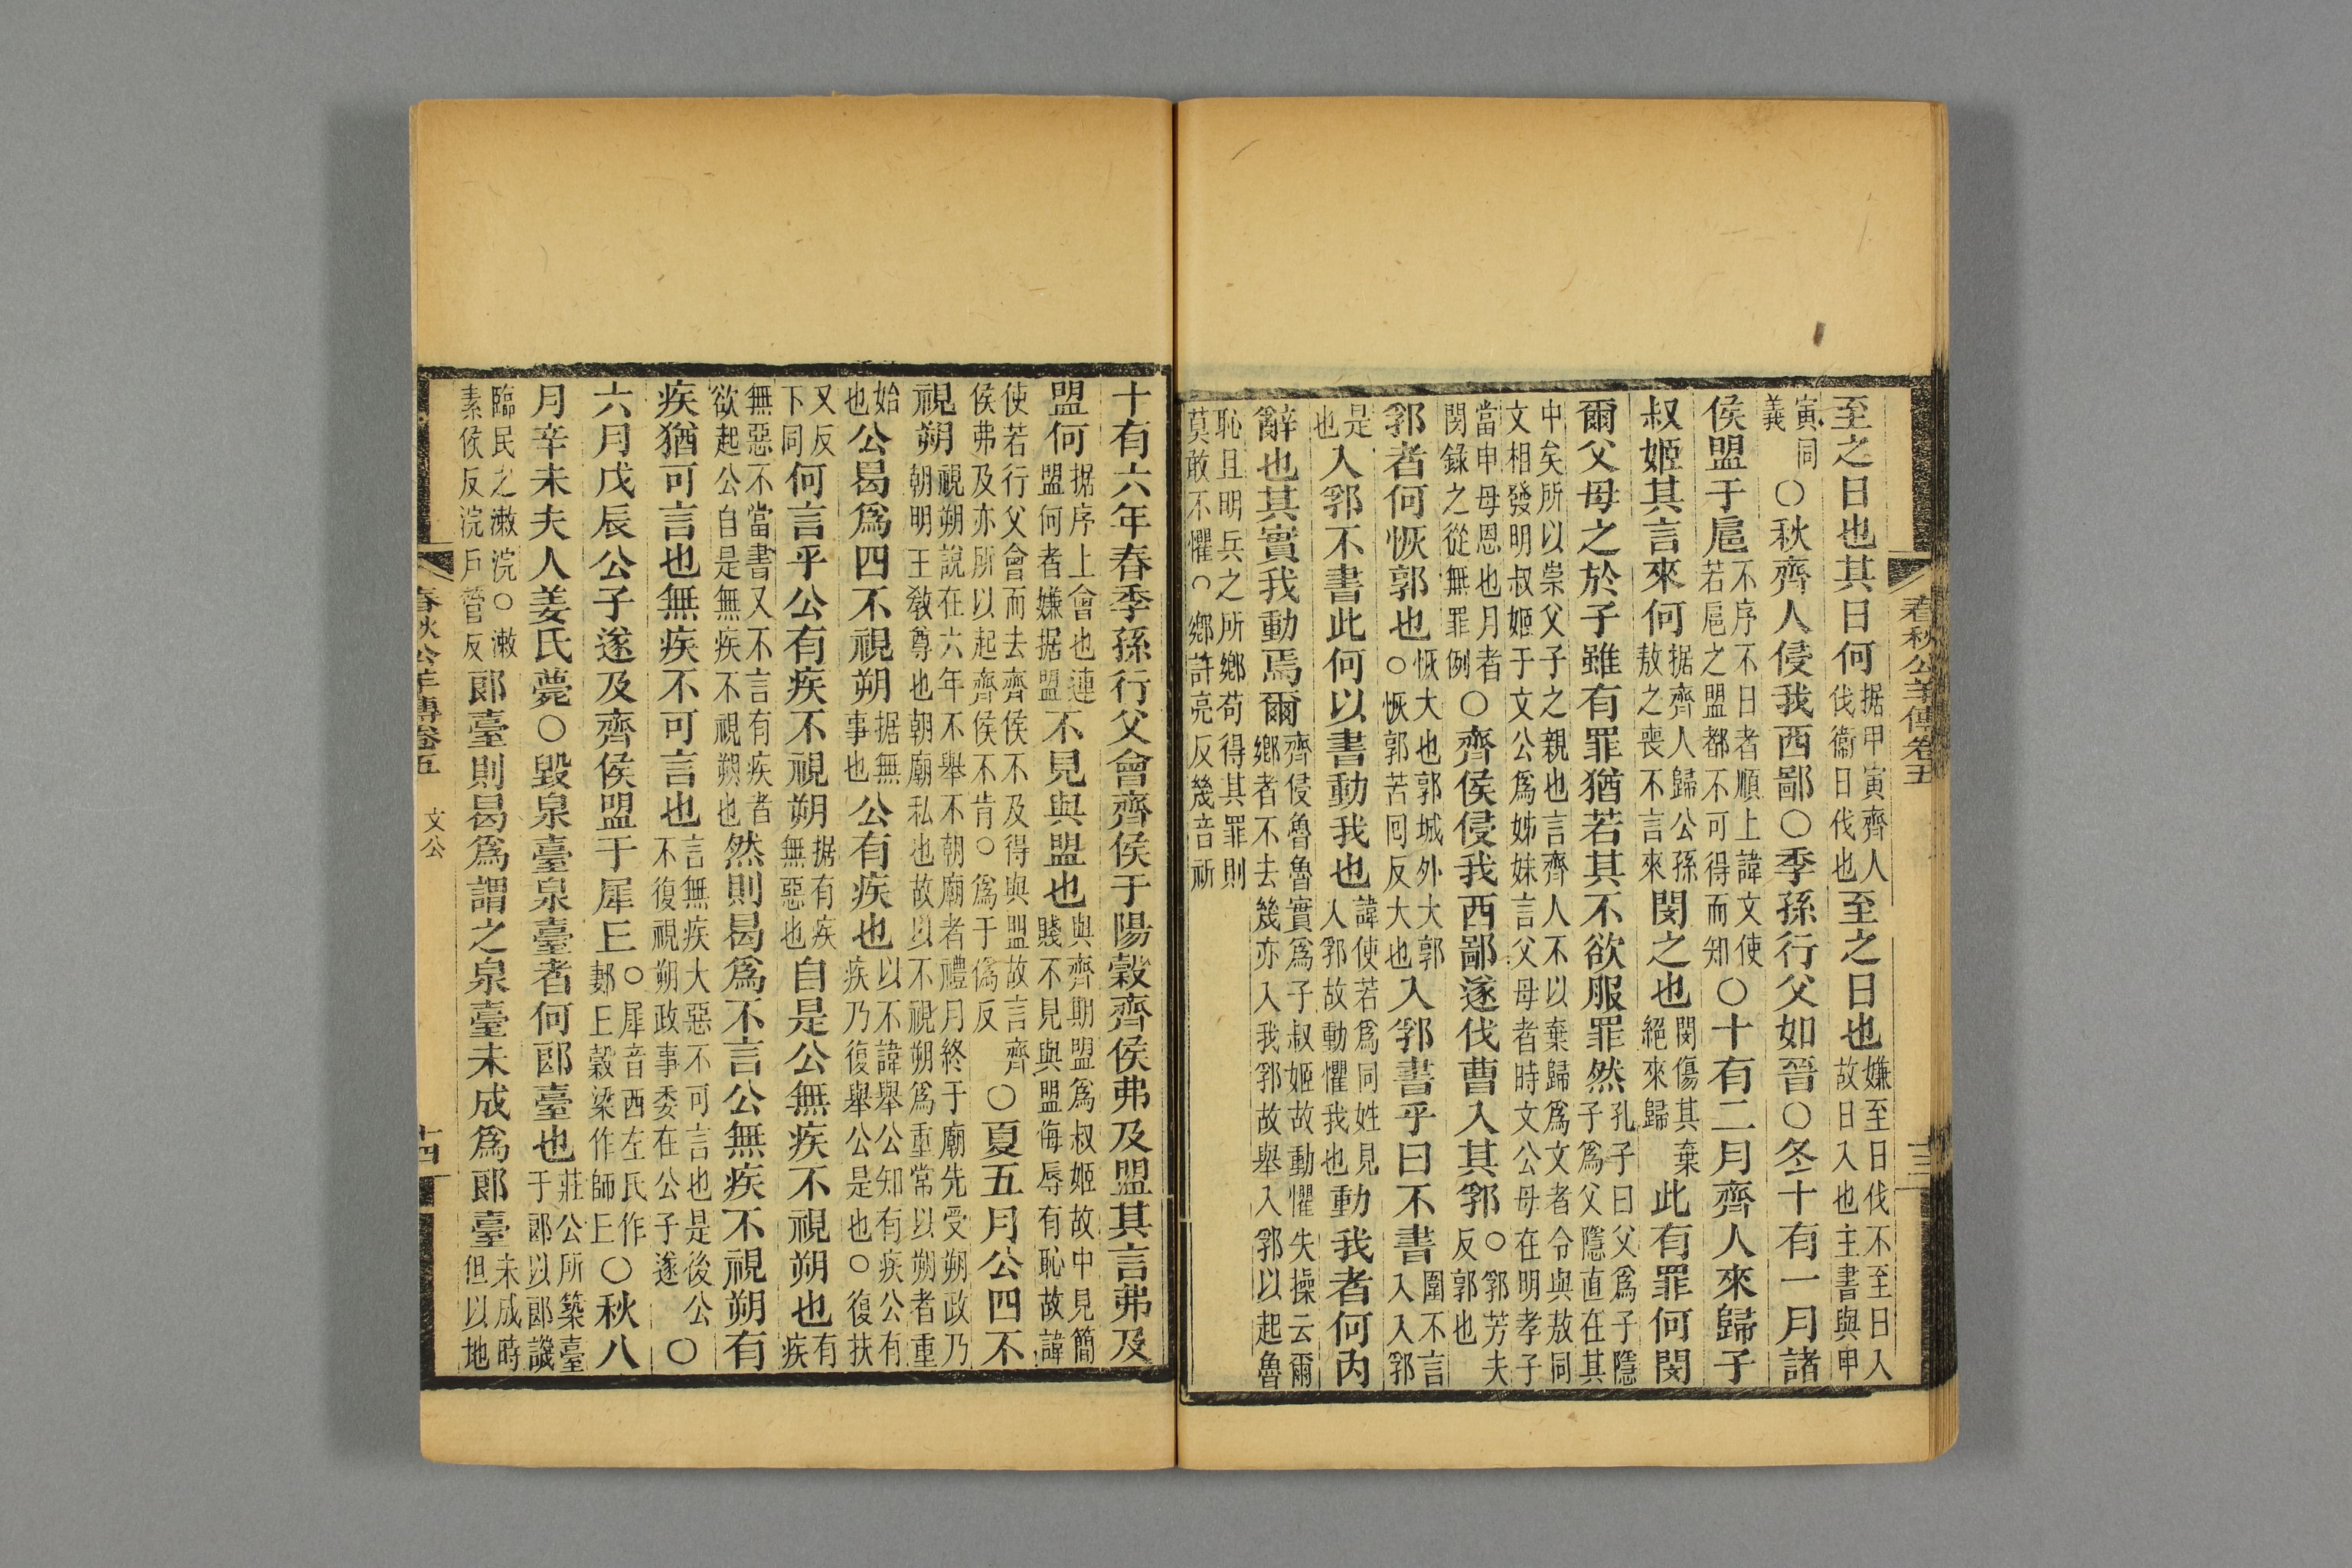 春秋公羊傳卷五 十三
至之日也其日何据甲寅齊人伐衞日伐也至之日也嫌至日伐不至日入故日入也主書與甲
寅同義○秋齊人侵我西鄙○季孫行父如晉○冬十有一月諸
侯盟于扈不序不日者順上諱文使若扈之盟都不可得而知○十有二月齊人來歸子
叔姬其言來何据齊人歸公孫敖之喪不言來閔之也閔傷其棄絕來歸此有罪何閔
爾父母之於子雖有罪猶若其不欲服罪然孔子曰父爲子隱子爲父隱直在其
中矣所以崇父子之親也言齊人不以棄歸爲文者令與敖同文相發明叔姬于文公爲姊妹言父母者時文公母在明孝子
當申母恩也月者閔錄之從無罪例○齊侯侵我西鄙遂伐曹入其郛○郛芳夫反郭也
郛者何恢郭也恢大也郭城外大郭○恢郭苦囘反大也入郛書乎曰不書圍不言入入郛
是也入郛不書此何以書動我也諱使若爲同姓見人郛故動懼我也動我者何內
辭也其實我動焉爾齊侵魯魯實爲子叔姬故動懼失操云爾鄉者不去幾亦入我郛故舉入郛以起魯
恥且明兵之所鄉苟得其罪則莫敢不懼○鄉許亮反幾音祈
十有六年春季孫行父會齊侯于陽穀齊侯弗及盟其言弗及
盟何据序上會也連盟何者嫌据盟不見與盟也與齊期盟爲叔姬故中見簡賤不見與盟侮辱有恥故諱
使若行父會而去齊侯不及得與盟故言齊侯弗及亦所以起齊侯不肯○爲于僞反○夏五月公四不
視朔視朔說在六年不舉不朝廟者禮月終于廟先受朔政乃朝明王敎尊也朝廟私也故以不視朔爲重常以朔者重
始也公曷爲四不視朔据無事也公有疾也以不諱舉公知有疾公有疾乃復舉公是也○復扶
又反下同何言乎公有疾不視朔据有疾無惡也自是公無疾不視朔也有疾
無惡不當書又不言有疾者欲起公自是無疾不視朔也然則曷爲不言公無疾不視朔有
疾猶可言也無疾不可言也言無疾大惡不可言也是後公不復視朔政事委在公子遂○
六月戊辰公子遂及齊侯盟于犀丘○犀音西左氏作郪丘穀梁作師丘○秋八
月辛未夫人姜氏薨○毀泉臺泉臺者何郎臺也莊公所築臺于郎以郎譏
臨民之漱浣○漱素侯反浣戶管反郎臺則曷爲謂之泉臺未成爲郎臺未成時但以地
春秋公羊傳卷五 文公 十四